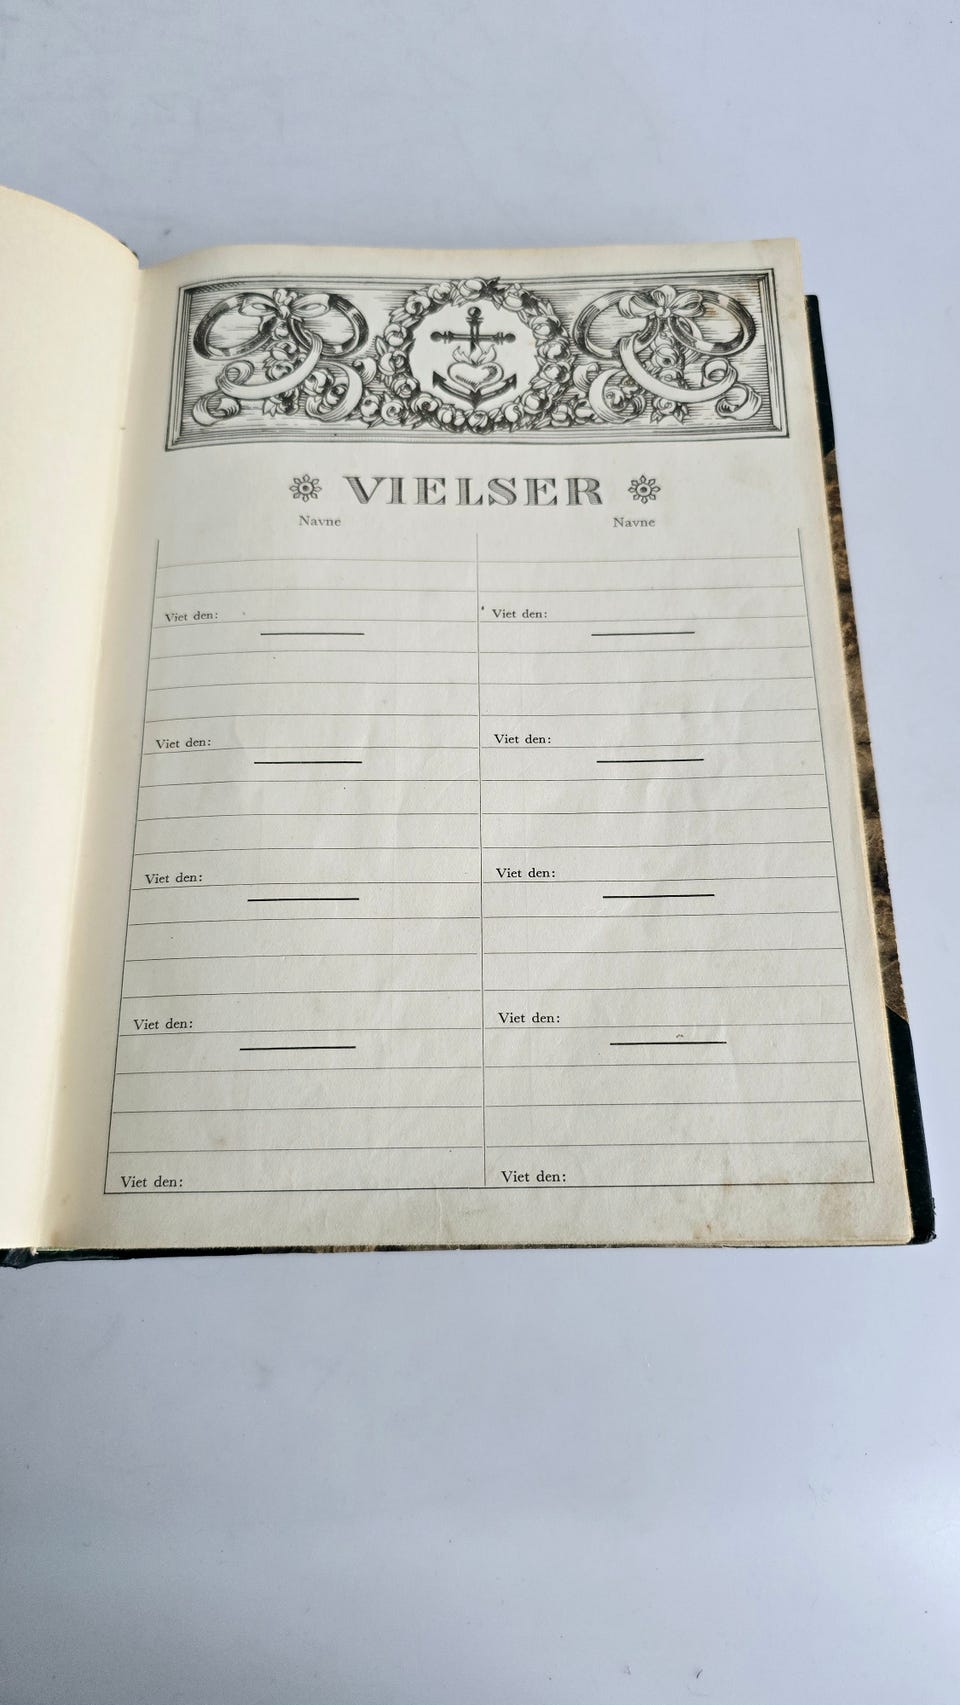 VIELSER
Navne Navne
Viet den: Viet den:
Viet den: Viet den:
Viet den: Viet den:
Viet den: Viet den:
Viet den: Viet den: